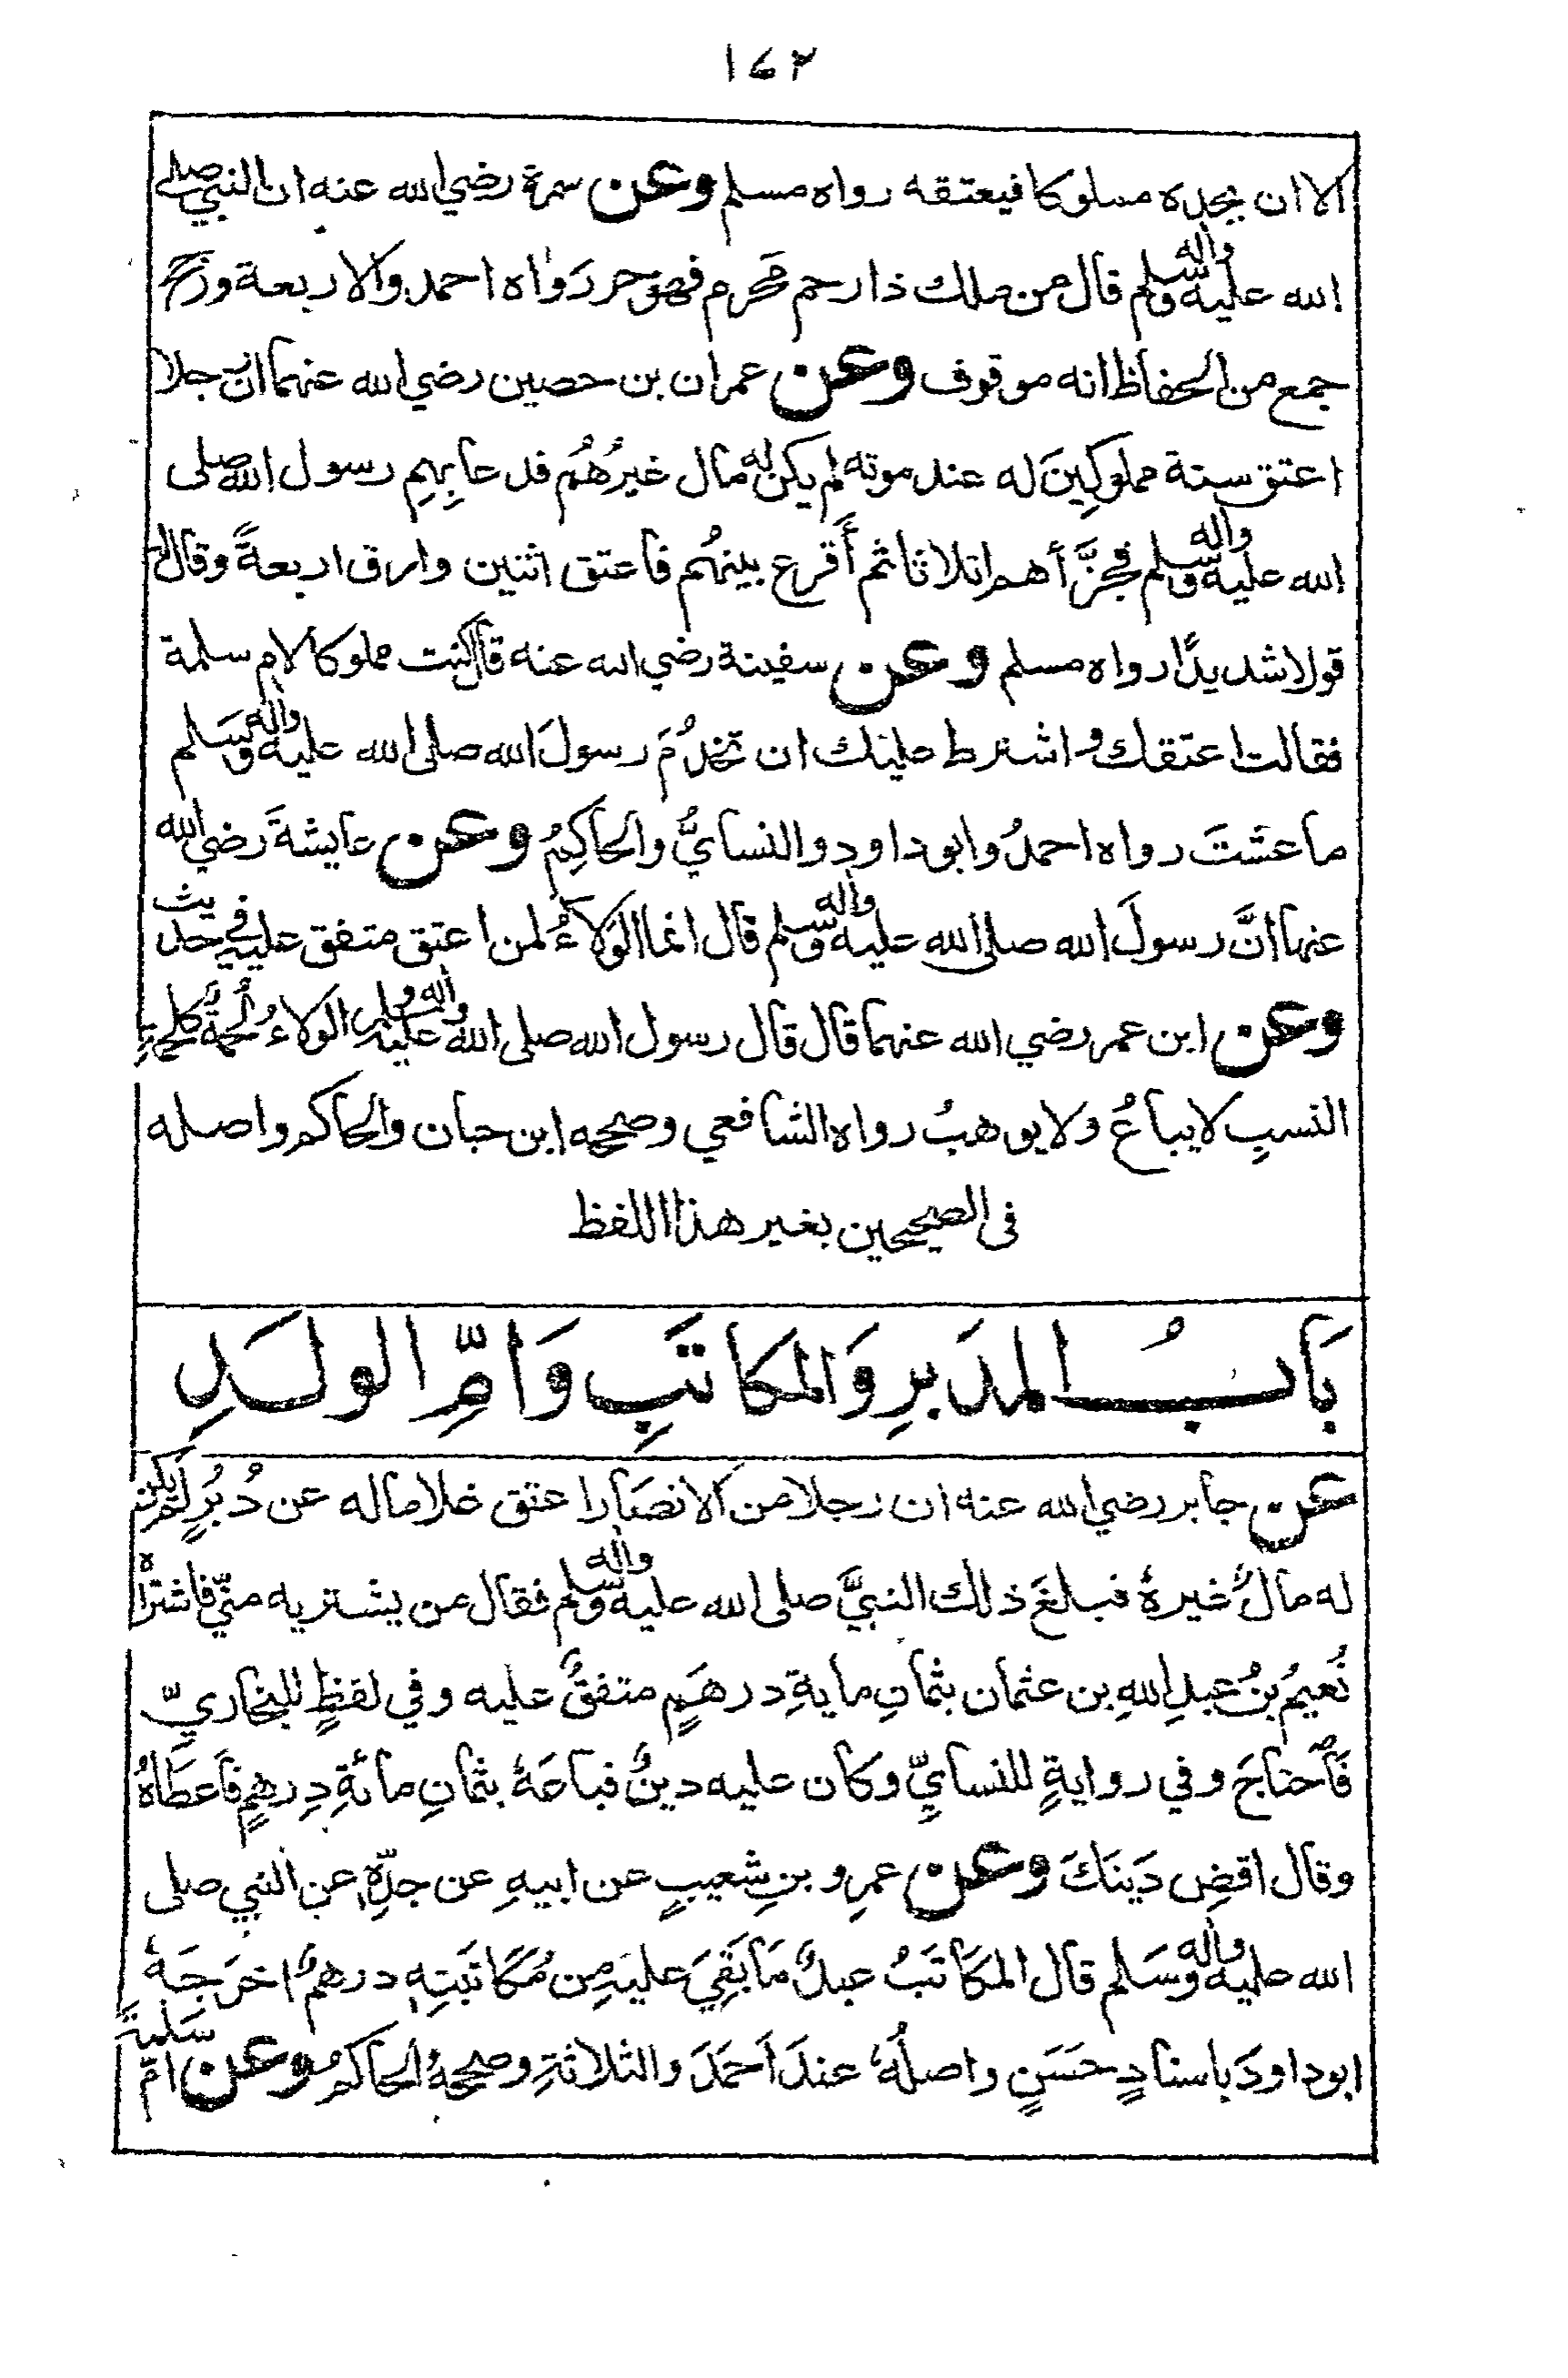 ١٤٢
الا ان يجده مملوكا فيعتقه رواه مسلم وعن سمرة رضي الله عنه ان النبي صلى
الله عليه واله وسلم قال من ملك ذا رحم مَحرم فهو حر رَواه احمد والاربعة ورجح
جمع من الحفاظ انه موقوف وعن عمران بن حصين رضي الله عنهما ان رجلا
اعتق ستة مملوكِينَ له عند موته لم يكن له مال غيرُهُم فدعا بِهِم رسول الله صلى
الله عليه واله وسلم فجزَّأهم اثلاثا ثم أَقرع بينهُم فاعتق اثنين وارق اربعةً وقال له
قولا شديدًا رواه مسلم وعن سفينة رضي الله عنه قال كنت مملوكا لام سلمة
فقالت اعتقك واشترط عليك ان تخدُمَ رسولَ الله صلى الله عليه واله وَسَلم
ما عشتَ رواه احمدُ وابو داود والنسايُّ والحاكِمُ وعن عايشةَ رضي الله
عنها انَّ رسولَ الله صلى الله عليه واله وسلم قال انما الوَلاءُ لمن اعتق متفق عليه في حديث
وعن ابن عمر رضي الله عنهما قال قال رسول الله صلى الله عليه واله وسلم الولاءُ لُحمةٌ كلحمةِ
النسبِ لا يباعُ ولا يوهبُ رواه الشافعي وصححه ابن حبان والحاكم واصله
في الصحيحين بغير هذا اللفظ
بَابُ المدَبرِ وَالمكاتَبِ وَامِّ الولَدِ
عن جابر رضي الله عنه ان رجلا من الانصَار اعتق غلاما له عن دُبُرٍ لَم يكن
له مالٌ غيرهُ فبلغَ ذلك النبيَّ صلى الله عليه واله وسلم فقال من يشتريه منّي فاشتراه
نُعيمُ بنُ عبدِ اللهِ بن عثمان بثمانِ مايةِ درهَمٍ متفقٌ عليه وفي لفظٍ للبخاريّ
فَاحتاجَ وفي روايةٍ للنسايِّ وكان عليه دينٌ فباعَهُ بثمانِ مائةِ دِرهمٍ فَاعطَاهُ
وقال اقضِ دَينَكَ وعن عمرِو بنِ شعيبٍ عن ابيهِ عن جدِّهِ عن النبي صلى
الله عليه واله وسَلم قال المكَاتَبُ عبدٌ مَا بَقِيَ عليهِ مِن مُكَاتَبَتِهِ درهمٌ اخرَجَهُ
ابو داودَ باسنادٍ حَسَنٍ واصلُهُ عندَ اَحمَدَ والثلاثةِ وصححهُ الحاكمُ وعن امِّ سَلَمةَ